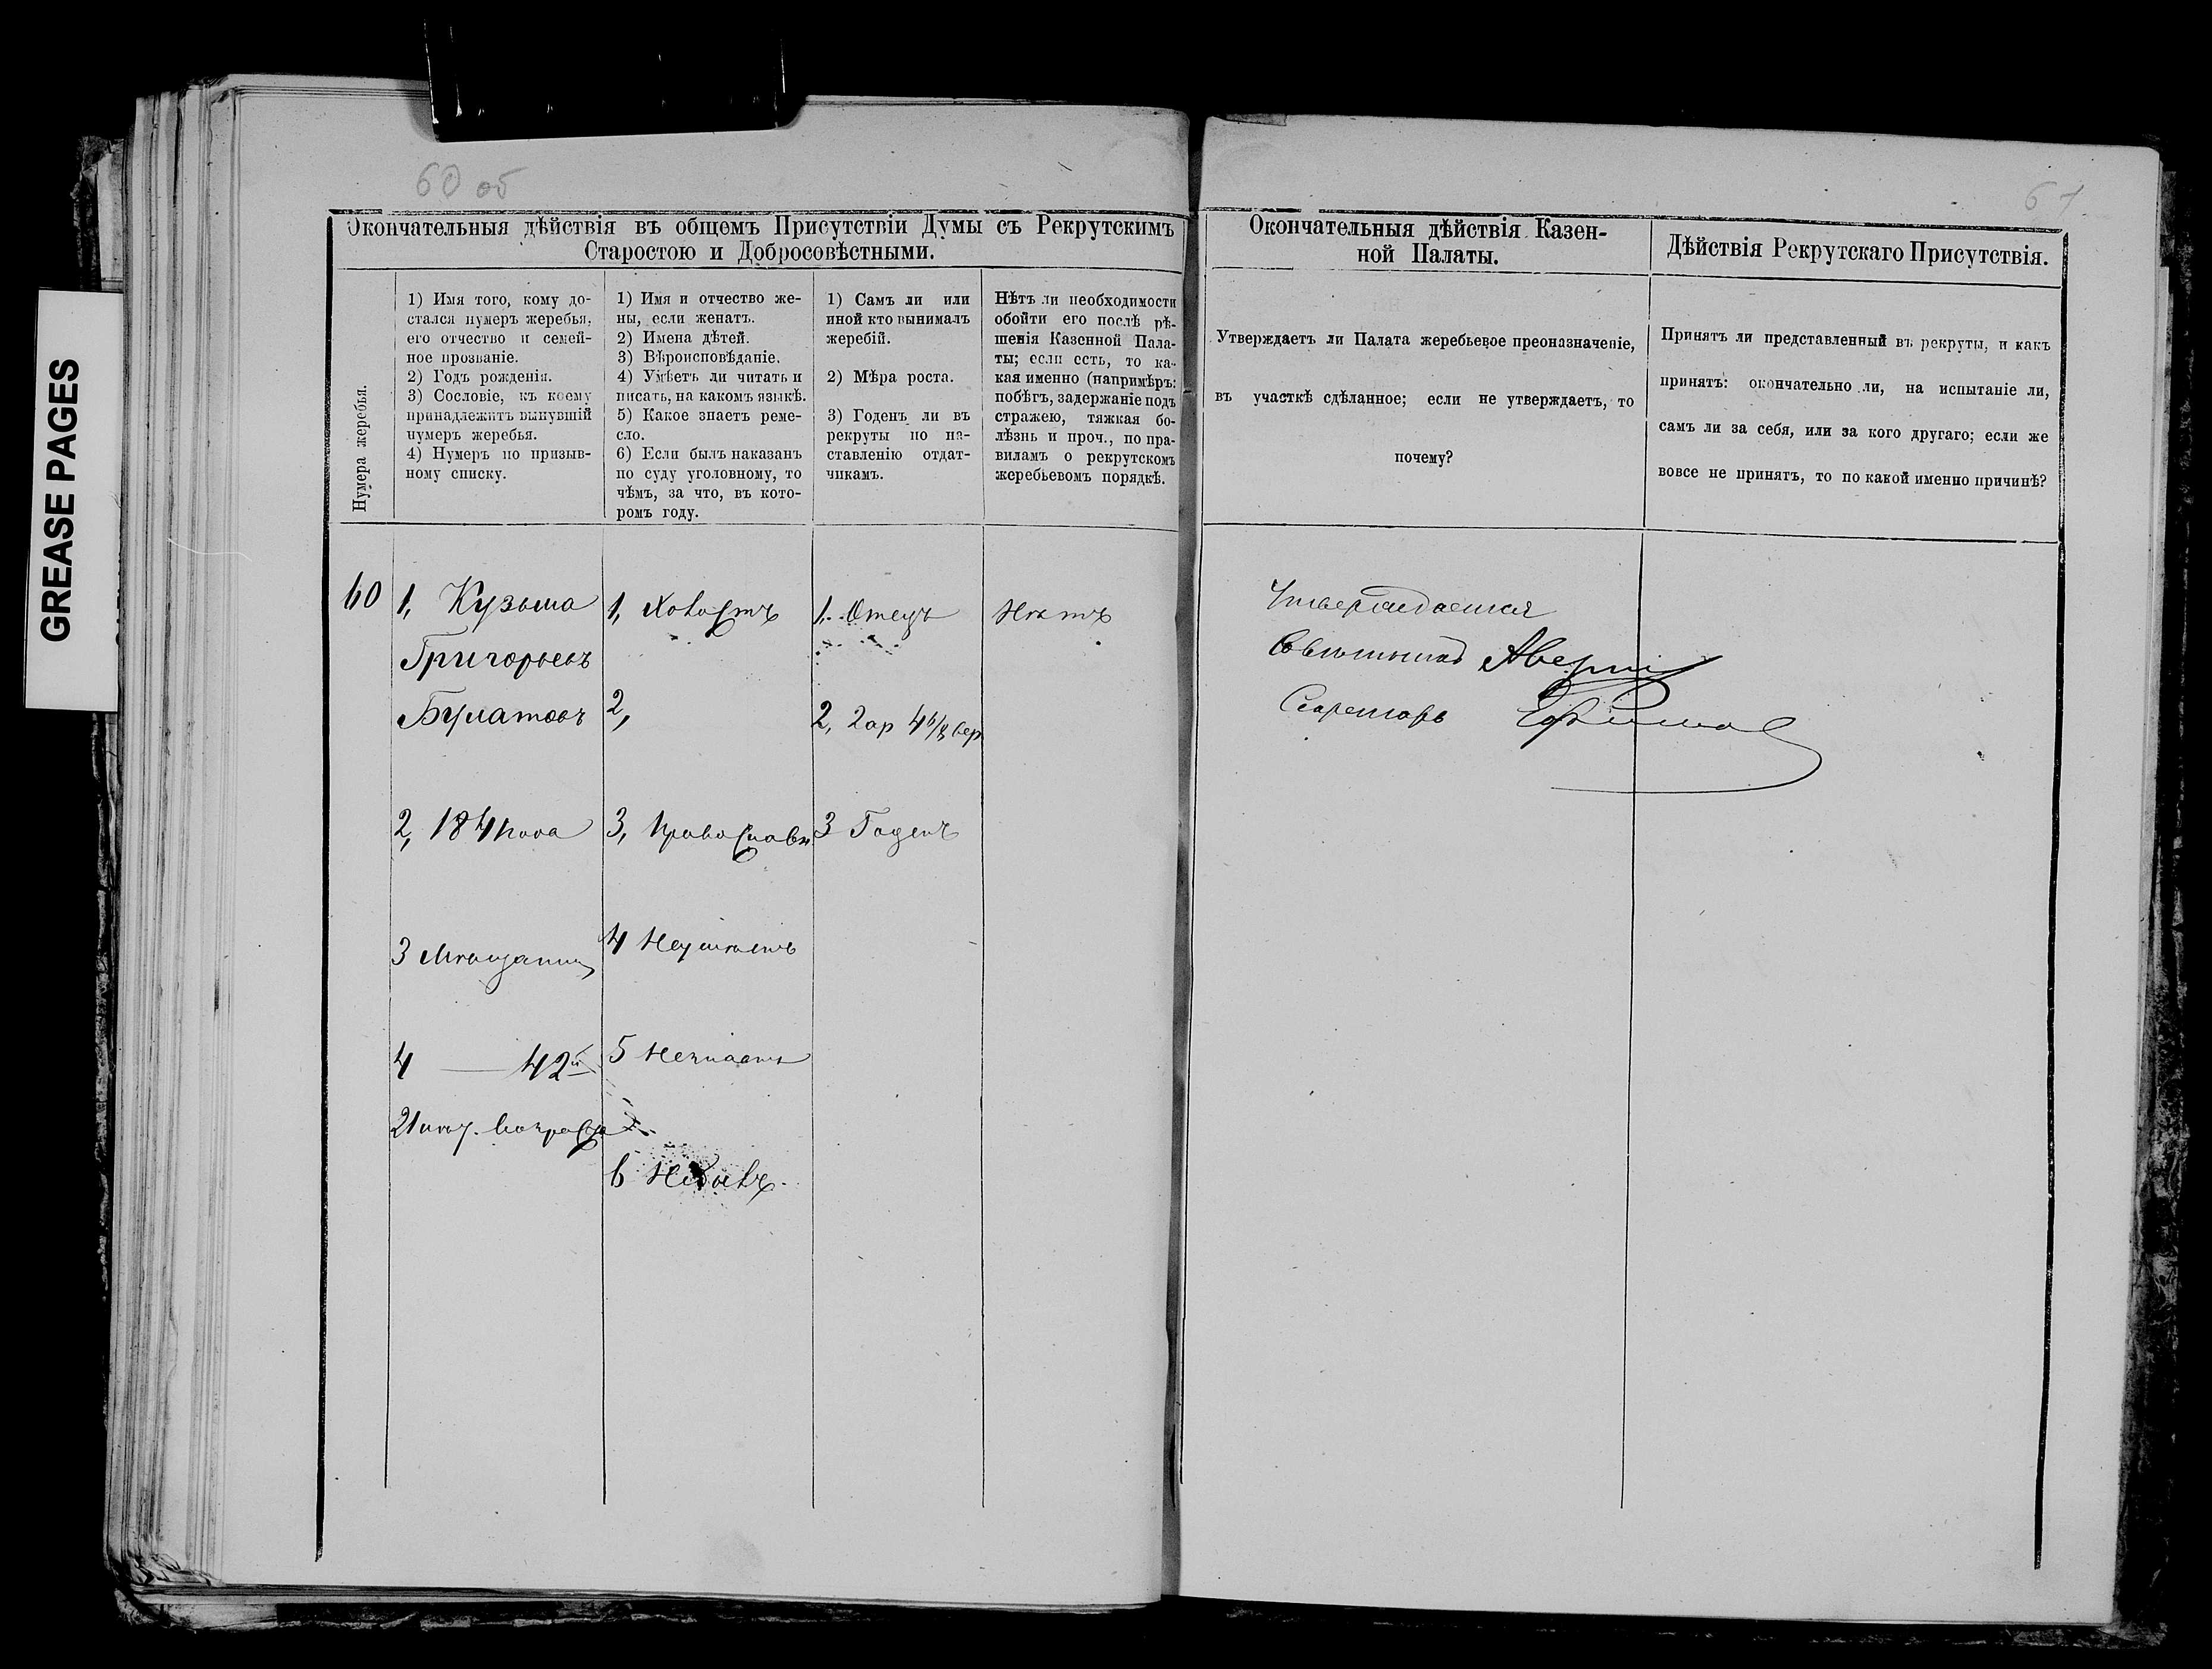 GREASE PAGES
60 об
61
Окончательныя дѣйствія въ общемъ Присутствіи Думы съ Рекрутскимъ
Старостою и Добросовѣстными.
Нумера жеребья.
1) Имя того, кому до-
стался нумеръ жеребья,
его отчество и семей-
ное прозваніе.
2) Годъ рожденія.
3) Сословіе, къ коему
принадлежитъ вынувшій
нумеръ жеребья.
4) Нумеръ по призыв-
ному списку.
1) Имя и отчество же-
ны, если женатъ.
2) Имена дѣтей.
3) Вѣроисповѣданіе.
4) Умѣетъ ли читать и
писать, на какомъ языкѣ.
5) Какое знаетъ реме-
сло.
6) Если былъ наказанъ
по суду уголовному, то
чѣмъ, за что, въ кото-
ромъ году.
1) Самъ ли или
иной кто вынималъ
жеребій.
2) Мѣра роста.
3) Годенъ ли въ
рекруты по на-
ставленію отдат-
чикамъ.
Нѣтъ ли необходимости
обойти его послѣ рѣ-
шенія Казенной Пала-
ты; если есть, то ка-
кая именно (напримѣръ:
побѣгъ, задержаніе подъ
стражею, тяжкая бо-
лѣзнь и проч., по пра-
виламъ о рекрутскомъ
жеребьевомъ порядкѣ.
Окончательныя дѣйствія Казен-
ной Палаты.
Утверждаетъ ли Палата жеребьевое преоназначеніе,
въ участкѣ сдѣланное; если не утверждаетъ, то
почему?
Дѣйствія Рекрутскаго Присутствія.
Принятъ ли представленный въ рекруты, и какъ
принятъ: окончательно ли, на испытаніе ли,
самъ ли за себя, или за кого другаго; если же
вовсе не принятъ, то по какой именно причинѣ?
60
1, Кузьма
Григорьевъ
Булатовъ
2, 1841 года
3 Мѣщанинъ
4 — 42й
21 лѣт. возраста
1, Холостъ
2,
3, Православн
4 Неумѣетъ
5 Незнаетъ
6 Небылъ
1, Отецъ
2, 2 ар 4 6/8 вер
3 Годенъ
Нѣтъ
Утверждается
Совѣтникъ
Секретарь